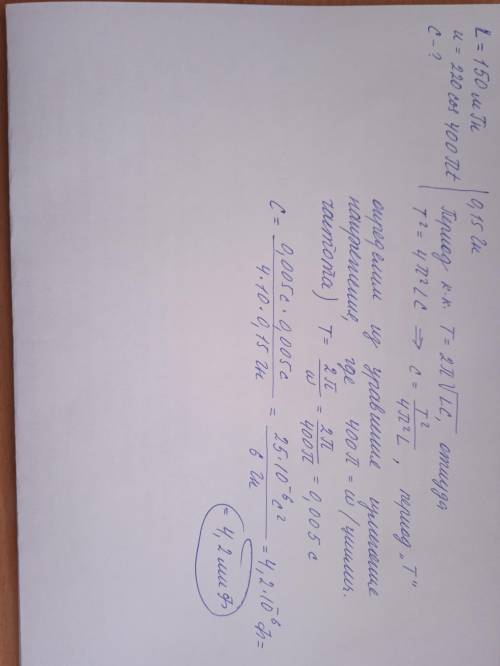 L = 150 мГн | 0,15 Гн
u = 220 cos 400πt
C - ?
Период к.к. T = 2π√LC, откуда
T² = 4π²LC ⇒ C = T²/4π²L, период „T"
определим из уравнения
напряжения, где 400π = ω (циклич.
частота) T = 2π/ω = 2π/400π = 0,005 с
C = 0,005 с · 0,005 с / 4·10·0,15 Гн = 25·10⁻⁶ с² / 6 Гн = 4,2·10⁻⁶ Ф =
= 4,2 мкФ